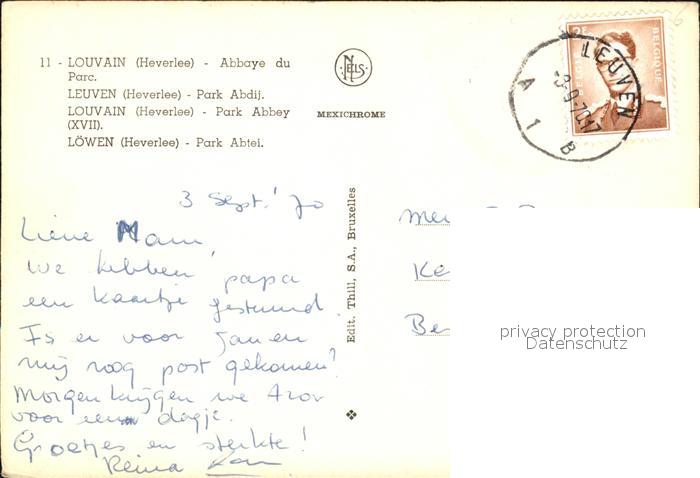 11 - LOUVAIN (Heverlee) - Abbaye du
Parc.
LEUVEN (Heverlee) - Park Abdij.
LOUVAIN (Heverlee) - Park Abbey
(XVII).
LÖWEN (Heverlee) - Park Abtei.
NELS
MEXICHROME
2F
BELGIQUE
LEUVEN
-3-9-70 17
A 1 B
Edit. Thill, S.A., Bruxelles
3 Sept.' 70
Lieve Mam,
We hebben papa
een kaartje gestuurd.
Is er voor Jan en
mij nog post gekomen?
Morgen krijgen we Azor
voor een dagje.
Groetjes en sterkte!
Reina
Me
Ke
Be
privacy protection
Datenschutz